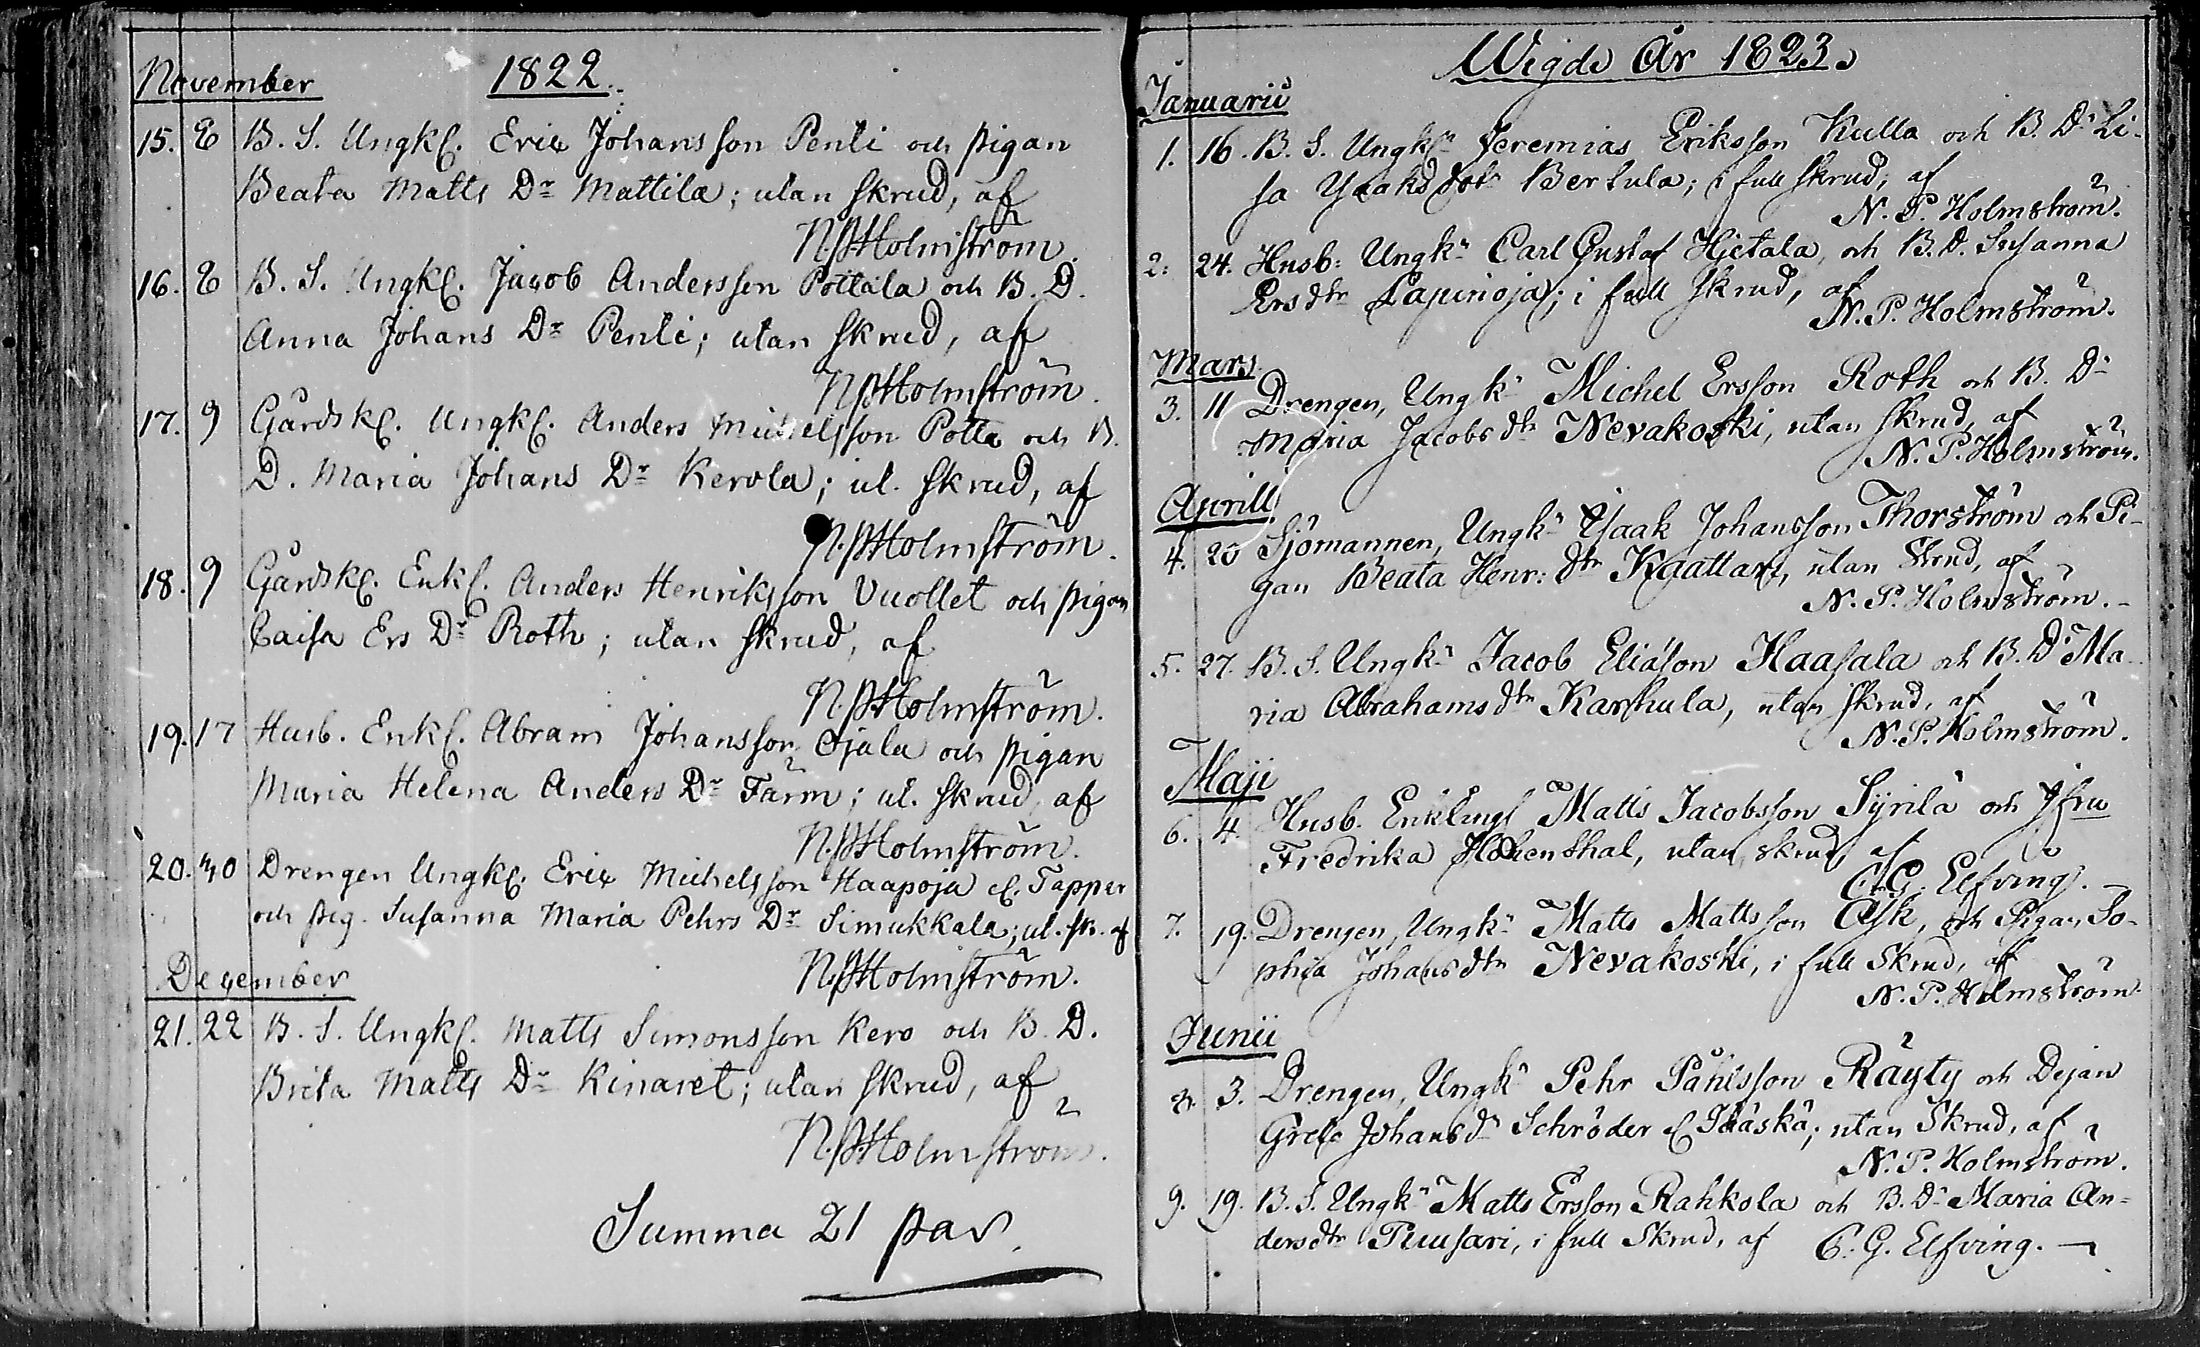 November 1822.
15. 8 B. S. Ungkl. Eric Johansson Penti och pigan
Beata Matts Dr Mattila; utan skrud, af
N.P. Holmström.
16. 8 B. S. Ungkl. Jacob Andersson Pottala och B. D.
Anna Johans Dr Penti; utan skrud, af
N.P. Holmström.
17. 9 Gårdskl. Ungkl. Anders Michelsson Potta och B.
D. Maria Johans Dr Kerola; ut. skrud, af
N.P. Holmström.
18. 9 Gårdskl. Enkl. Anders Henriksson Vuollet och pigan
Caisa Ers Dr Roth; utan skrud, af
N.P. Holmström.
19. 17 Husb. Enkl. Abram Johansson Ojala och pigan
Maria Helena Anders Dr Färm; ut. skrud, af
N.P. Holmström.
20. 30 Drengen Ungkl. Eric Michelsson Haapoja el. Tapper
och pig. Susanna Maria Pehrs Dr Simukkala; ut. sk. af
N.P. Holmström.
December
21. 22 B. S. Ungkl. Matts Simonsson Kero och B. D.
Brita Matts Dr Kinaret; utan skrud, af
N.P. Holmström.
Summa 21 par.
Wigde År 1823.
Januarii
1. 16. B. S. Ungkn Jeremias Eriksson Kulla och B. Dr Li-
sa Ysaksdotr Bertula; i full skrud, af
N. P. Holmström.
2. 24. Husb: Ungkn Carl Gustaf Hjetala, och B. D. Susanna
Ersdtr Lapinoja; i full skrud, af
N. P. Holmström.
Mars.
3. 11 Drengen, Ungkn Michel Ersson Roth och B. Dr
Maria Jacobsdtr Nevakoski, utan skrud, af
N. P. Holmström.
Aprill
4. 20 Sjömannen, Ungkn Ysaak Johansson Thorström och Pi-
gan Beata Henr: dtr Kaattari, utan Skrud, af
N. P. Holmström.
5. 27. B. S. Ungkn Jacob Eliason Haasala och B. Dr Ma-
ria Abrahamsdtr Karhula, utan skrud, af
N. P. Holmström.
Maji
6. 4. Husb. Enklingl Matts Jacobsson Syrilä och Jfru
Fredrika Hohenthal, utan skrud, af
C. G. Elfving.
7. 19. Drengen, Ungkn Matts Mattsson Ask, och Pigan So-
phia Johansdtr Nevakoski, i full Skrud, af
N. P. Holmström
Junii
8. 3. Drengen, Ungkn Pehr Påhlsson Räyty och Dejan
Greta Johansdr Schröder el. ; utan Skrud, af
N. P. Holmström.
9. 19. B. S. Ungkn Matts Ersson Rahkola och B. Dr Maria An-
dersdtr Puusari, i full Skrud, af C. G. Elfving.